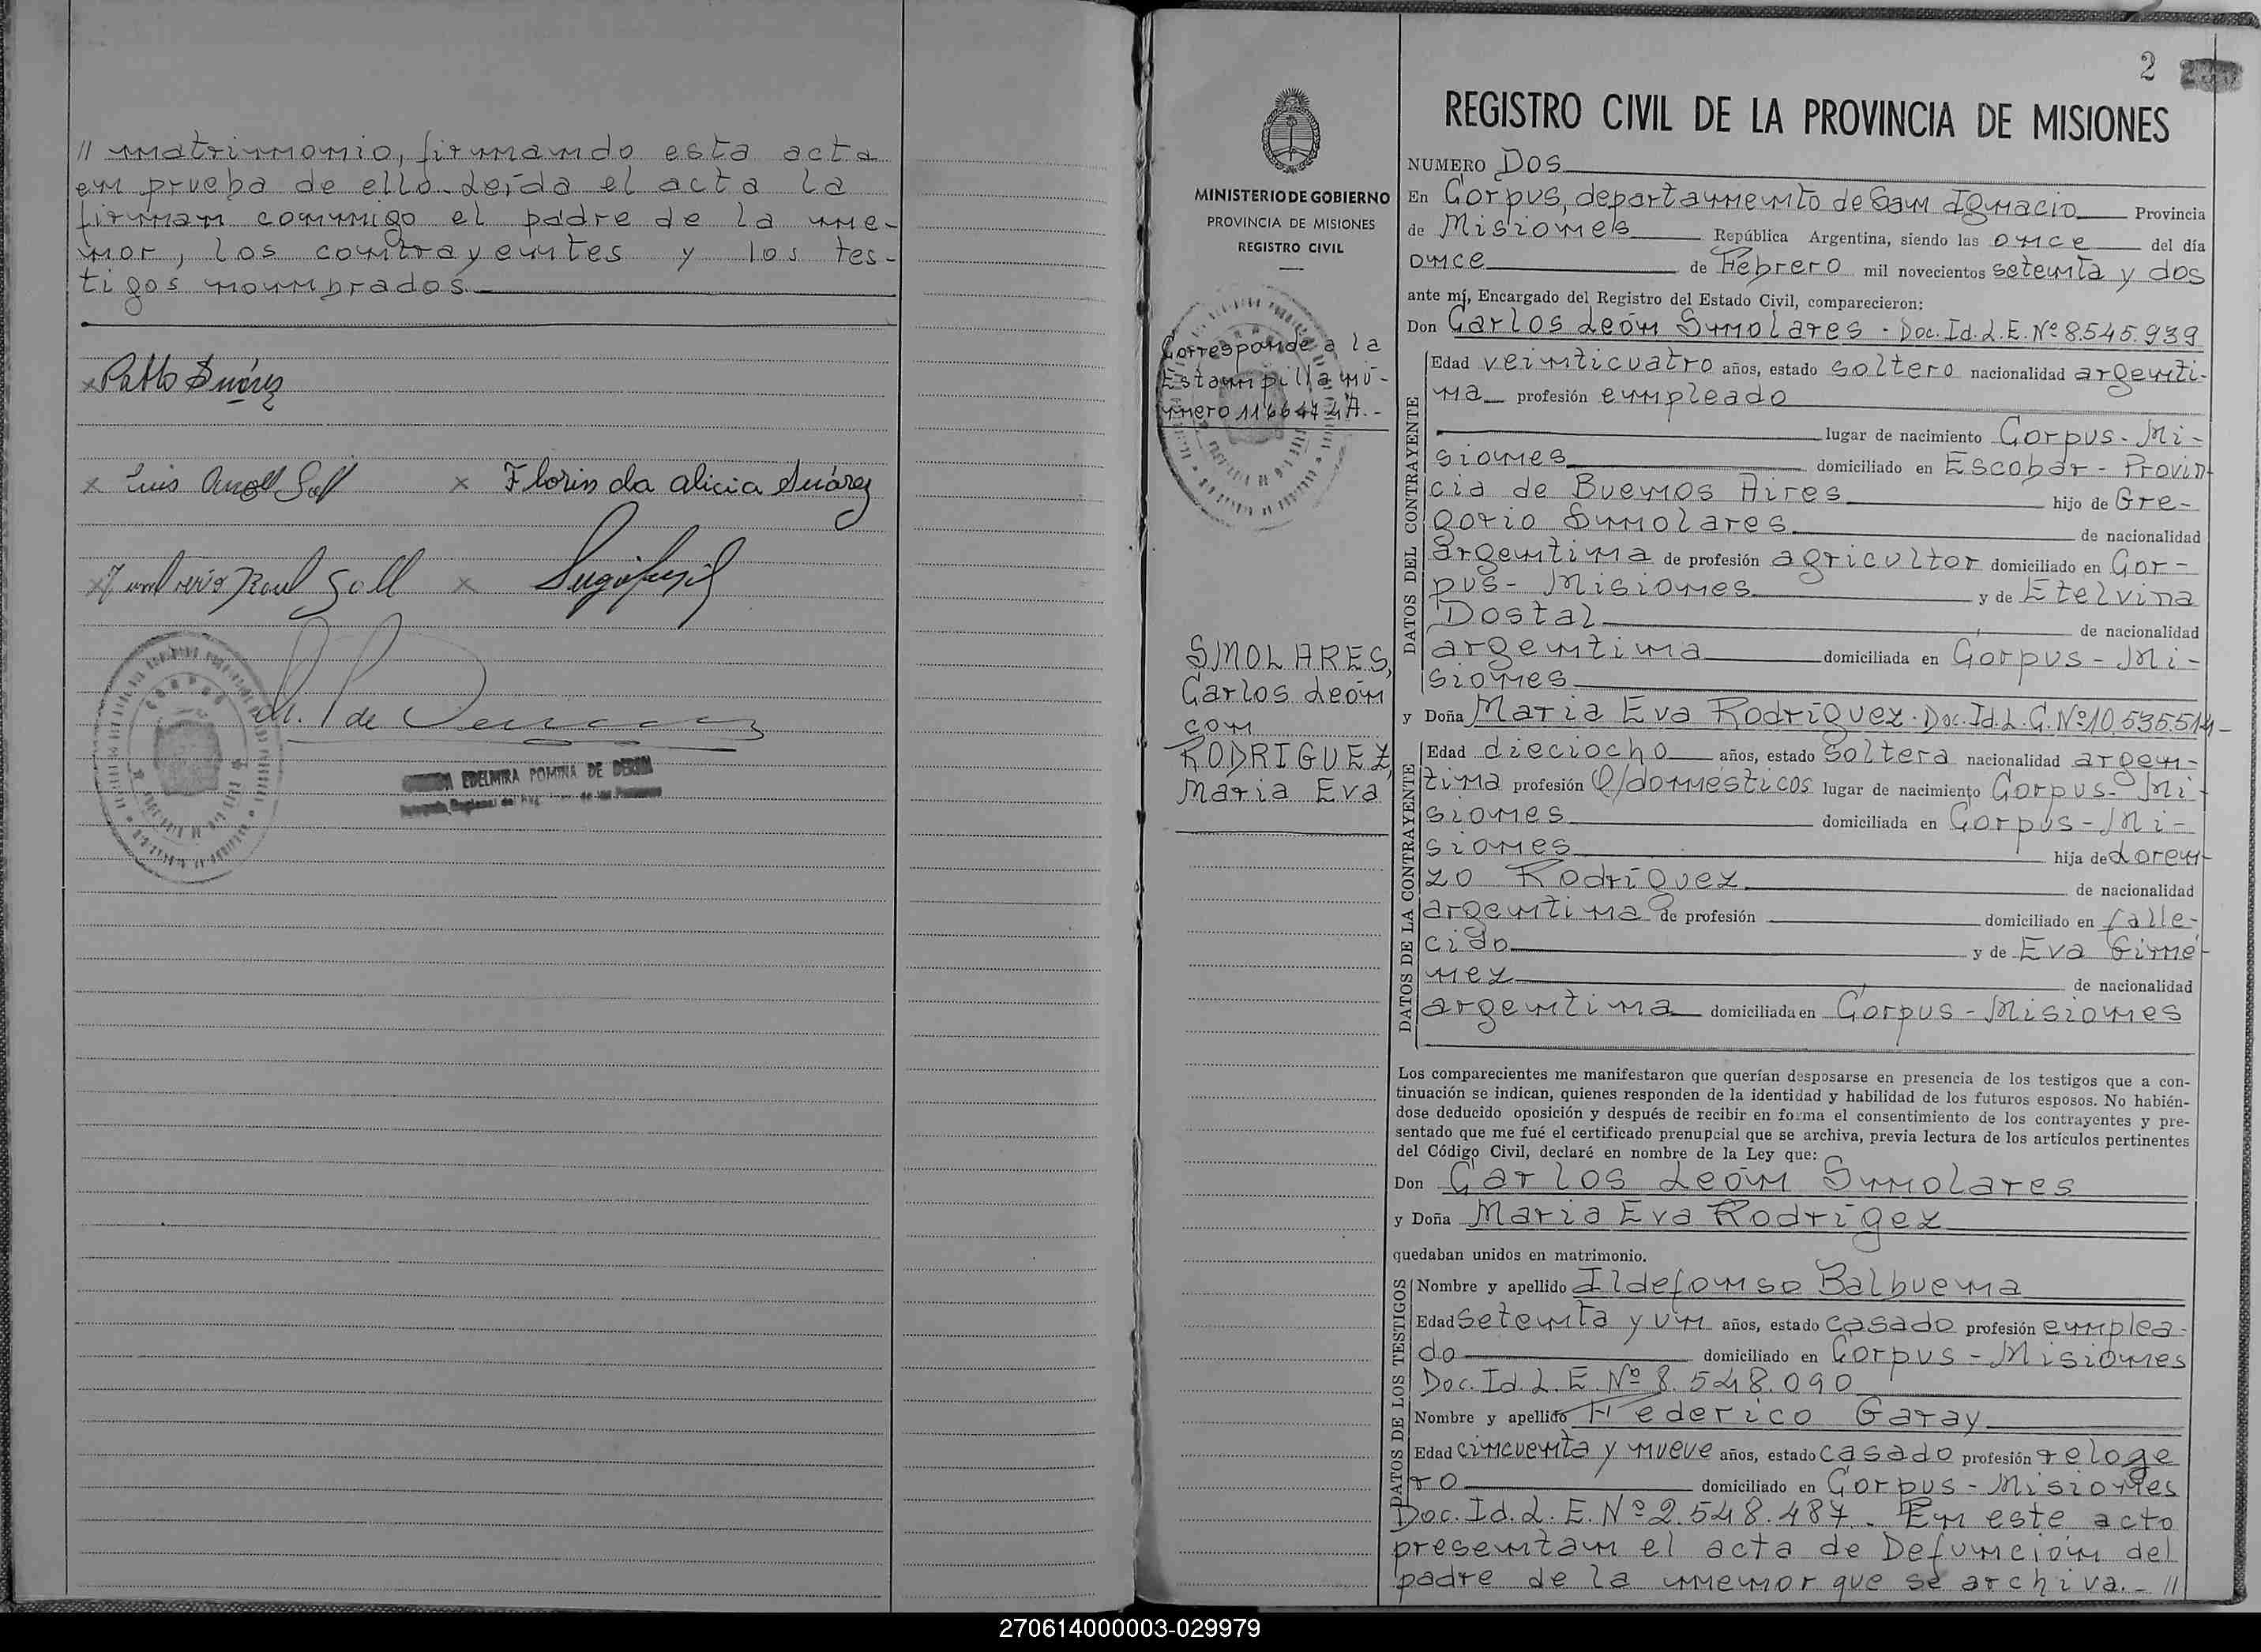 // matrimonio, firmando esta acta
en prueba de ello. Leída el acta la
firman conmigo el padre de la me-
nor, los contrayentes y los tes-
tigos nombrados.
x Pablo Suárez
x Luis Angel Soll x Florinda Alicia Suárez
x Raul Soll x
EDELMIRA POMINA DE
2
REGISTRO CIVIL DE LA PROVINCIA DE MISIONES
MINISTERIO DE GOBIERNO
PROVINCIA DE MISIONES
REGISTRO CIVIL
Corresponde a la
Estampilla nú-
mero 1166474A.-
SMOLARES,
Carlos León
con
RODRIGUEZ,
Maria Eva
NUMERO Dos
En Corpus, departamento de San Ignacio Provincia
de Misiones República Argentina, siendo las once del día
once de Febrero mil novecientos setenta y dos
ante mí, Encargado del Registro del Estado Civil, comparecieron:
Don Carlos León Smolares - Doc. Id. L.E. Nº 8.545.939
DATOS DEL CONTRAYENTE
Edad veinticuatro años, estado soltero nacionalidad argenti-
na profesión empleado
lugar de nacimiento Corpus - Mi-
siones domiciliado en Escobar - Provin
cia de Buenos Aires hijo de Gre-
gorio Smolares de nacionalidad
argentina de profesión agricultor domiciliado en Cor-
pus - Misiones y de Etelvina
Dostal de nacionalidad
argentina domiciliada en Corpus - Mi-
siones
y Doña Maria Eva Rodríguez - Doc. Id. L.C. Nº 10.535.514-
DATOS DE LA CONTRAYENTE
Edad dieciocho años, estado soltera nacionalidad argen-
tina profesión Q/domesticos lugar de nacimiento Corpus - Mi-
siones domiciliada en Corpus - Mi-
siones hija de Loren-
zo Rodríguez de nacionalidad
argentina de profesión domiciliado en falle-
cido y de Eva Gimé-
nez de nacionalidad
argentina domiciliada en Corpus - Misiones
Los comparecientes me manifestaron que querían desposarse en presencia de los testigos que a con-
tinuación se indican, quienes responden de la identidad y habilidad de los futuros esposos. No habién-
dose deducido oposición y después de recibir en forma el consentimiento de los contrayentes y pre-
sentado que me fué el certificado prenupcial que se archiva, previa lectura de los artículos pertinentes
del Código Civil, declaré en nombre de la Ley que:
Don Carlos León Smolares
y Doña Maria Eva Rodrígez
quedaban unidos en matrimonio.
DATOS DE LOS TESTIGOS
Nombre y apellido Ildefonso Balbuena
Edad setenta y un años, estado casado profesión emplea-
do domiciliado en Corpus - Misiones
Doc. Id. L.E. Nº 8.548.090
Nombre y apellido Federico Garay
Edad cincuenta y nueve años, estado casado profesión reloge
ro domiciliado en Corpus - Misiones
Doc. Id. L.E. Nº 2.548.487. En este acto
presentan el acta de Defunción del
padre de la menor que se archiva.- //
270614000003-029979